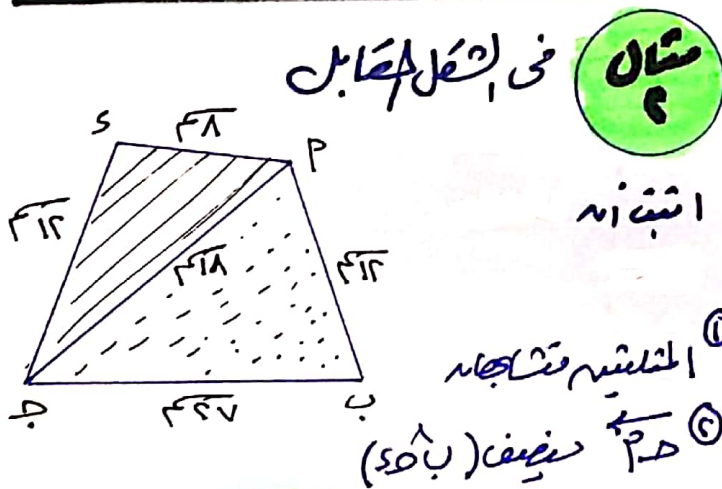 مثال
٢
فى الشكل المقابل
اثبت أنه
① المثلثين متشابهان
② جـ أ ينصف (ب جـ د)
د
٨ سم
أ
١٢ سم
١٨ سم
١٢ سم
جـ
٢٧ سم
ب